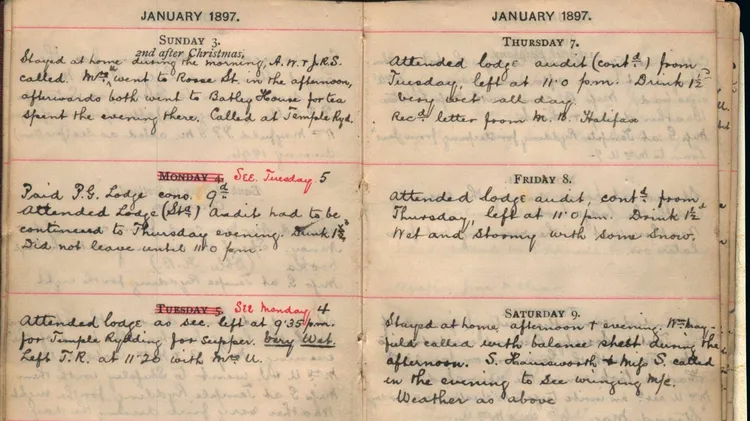 JANUARY 1897.
SUNDAY 3.
2nd after Christmas,
Stayed at home during the morning, A.W. & J.R.S.
called. Mrs U went to Rosse St. in the afternoon,
afterwards both went to Batley House for tea
spent the evening there. Called at Temple Ryd.
MONDAY 4. SEE. Tuesday 5
Paid P.G. Lodge cons. 9d
Attended Lodge (Std) Audit had to be
continued to Thursday evening. Drink 1½d
Did not leave until 11.0 pm.
TUESDAY 5. SEE Monday 4
Attended lodge as sec. left at 9.35 p.m.
for Temple Rydding for supper. Very Wet.
Left T.R. at 11.20 with Mrs U.
JANUARY 1897.
THURSDAY 7.
Attended lodge audit (contd) from
Tuesday, left at 11.0 p.m. Drink 1½d
Very wet all day.
Recd letter from M. B. Halifax
FRIDAY 8.
Attended lodge audit, contd from
Thursday, left at 11.0 pm. Drink 1½d
Wet and stormy with some snow.
SATURDAY 9.
Stayed at home, afternoon & evening. Wm May-
field called with balance sheet during the
afternoon. S. Hainsworth & Miss S. called
in the evening to see wringing M/c.
Weather as above